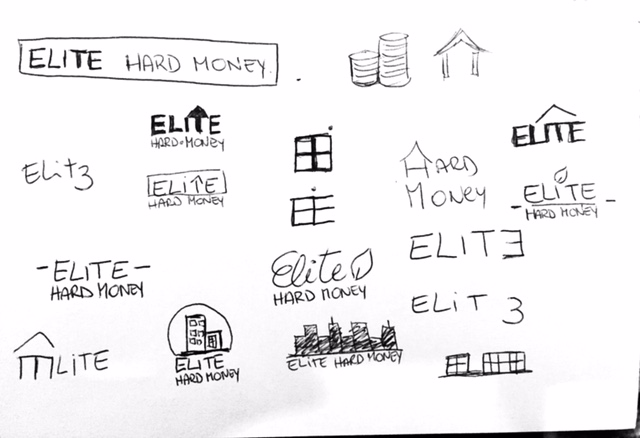 ELITE HARD MONEY
ELITE
HARD MONEY
ELITE
ELiTE
HARD MONEY
Elit3
HARD
MONEY
ELiTE
HARD MONEY
ELITE
HARD MONEY
Elite
HARD MONEY
ELITE
ELiT 3
ELITE
ELITE
HARD MONEY
ELITE HARD MONEY